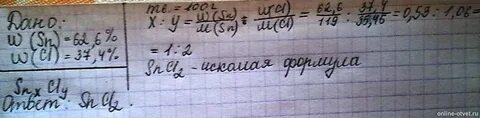 Дано:
ω (Sn) = 62,6%
ω (Cl) = 37,4%
SnxCly
Ответ: SnCl2.
mв. = 100г
X : Y = ω(Sn)/M(Sn) : ω(Cl)/M(Cl) = 62,6/119 : 37,4/35,45 = 0,53 : 1,06 =
= 1:2
SnCl2 - искомая формула
online-otvet.ru